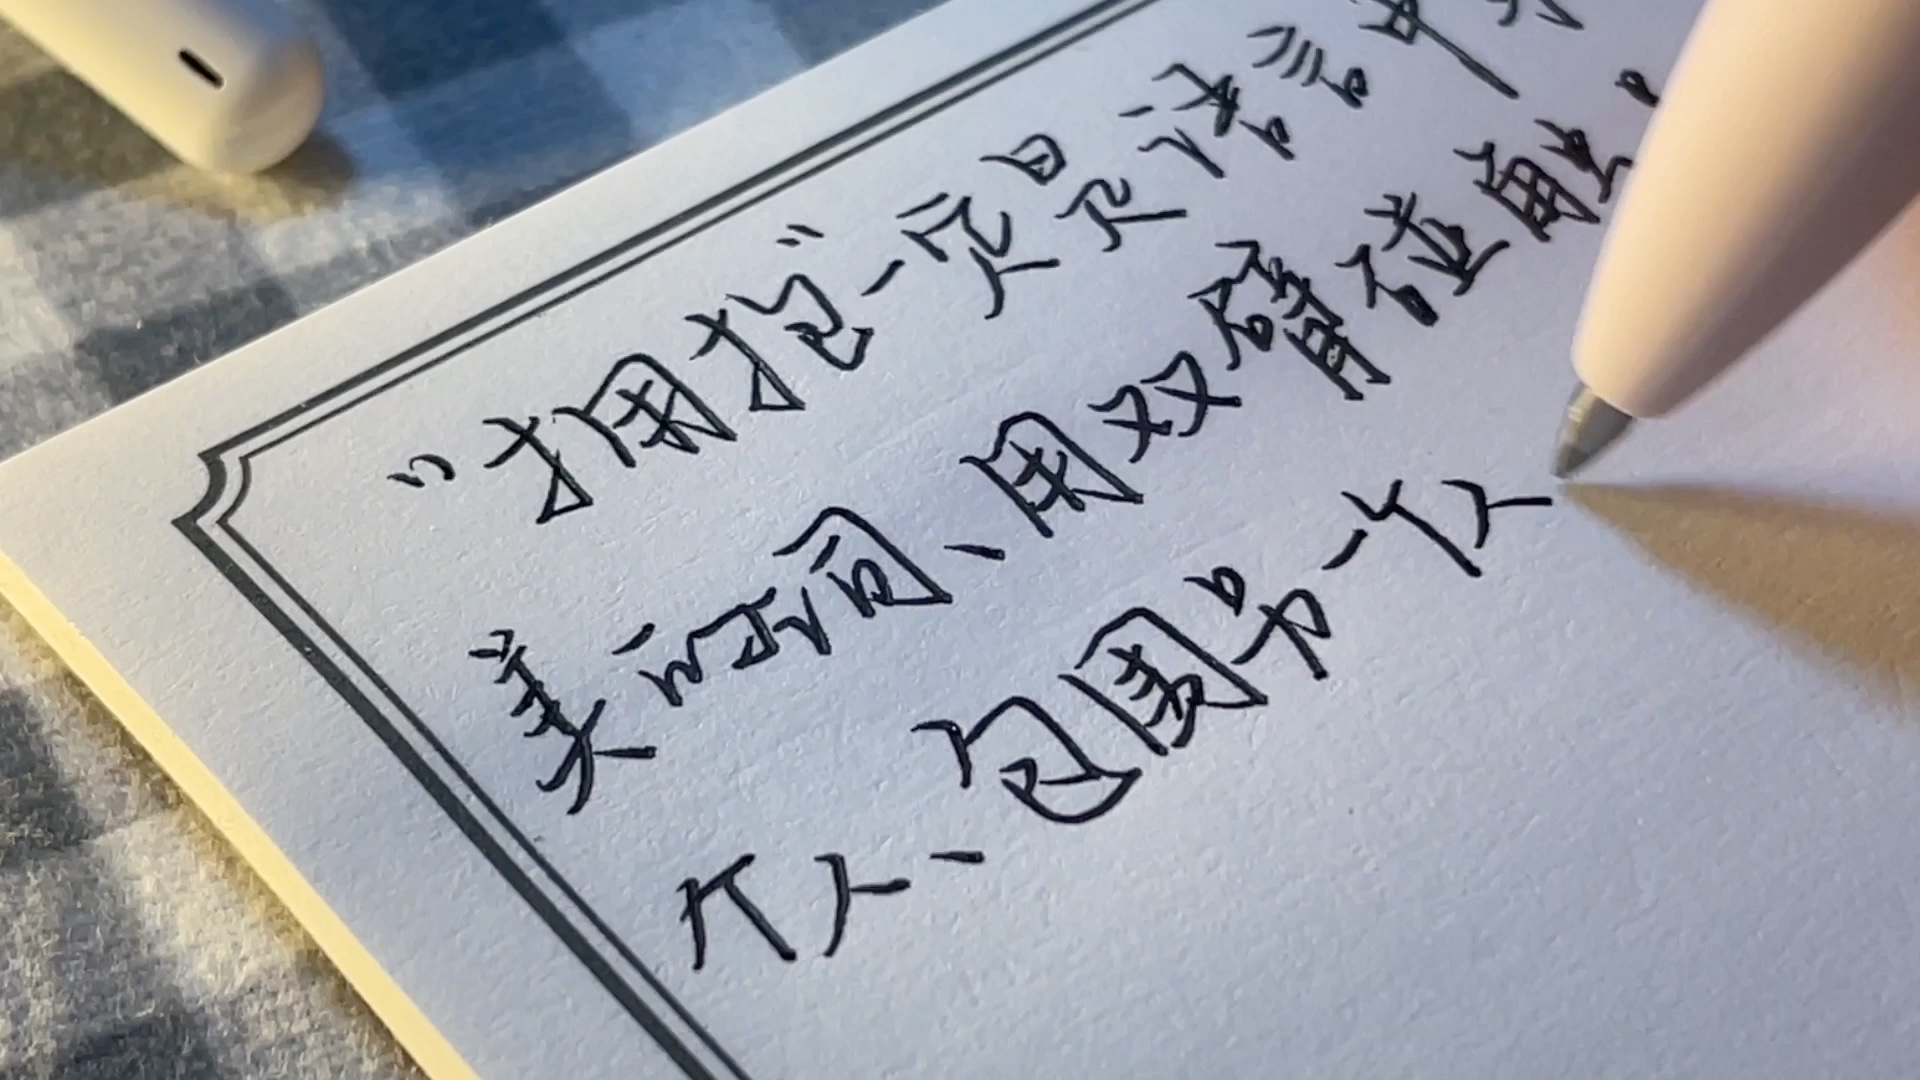 “拥抱”一定是语言中
美的词、用双臂碰触
个人、包围另一个人